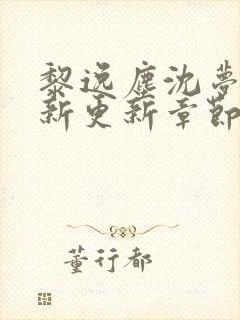 黎逸塵沈夢
新更新章節
董行都